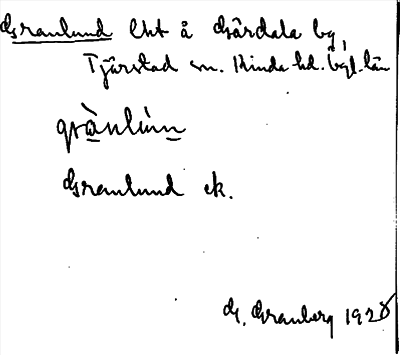 Granlund lht å Gärdala by,
Tjärstad sn. Kinda hd. Ögl. län
grànlùn
Granlund ek.
G. Granberg 1928